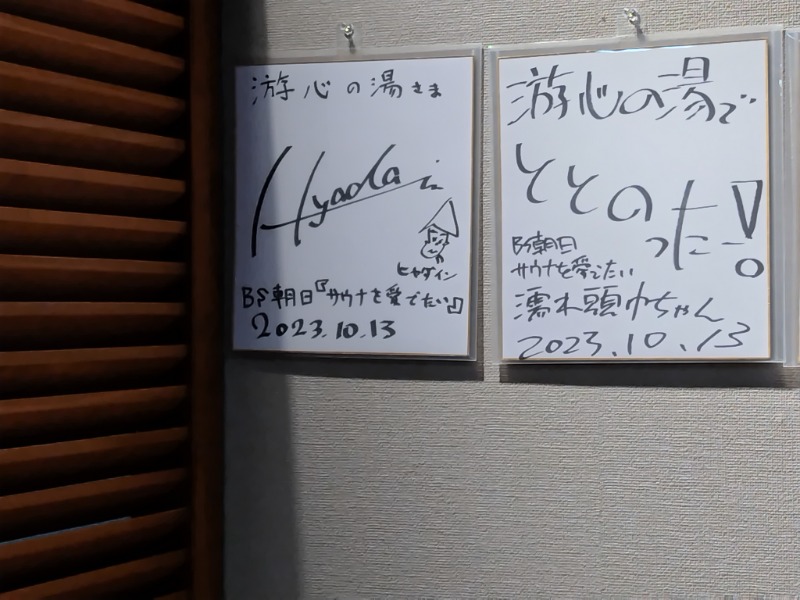 游心の湯さま
Hyadain
ヒャダイン
BS朝日『サウナを愛でたい』
2023.10.13
游心の湯で
ととのった!
BS朝日
サウナを愛でたい
濡れ頭巾ちゃん
2023.10.13